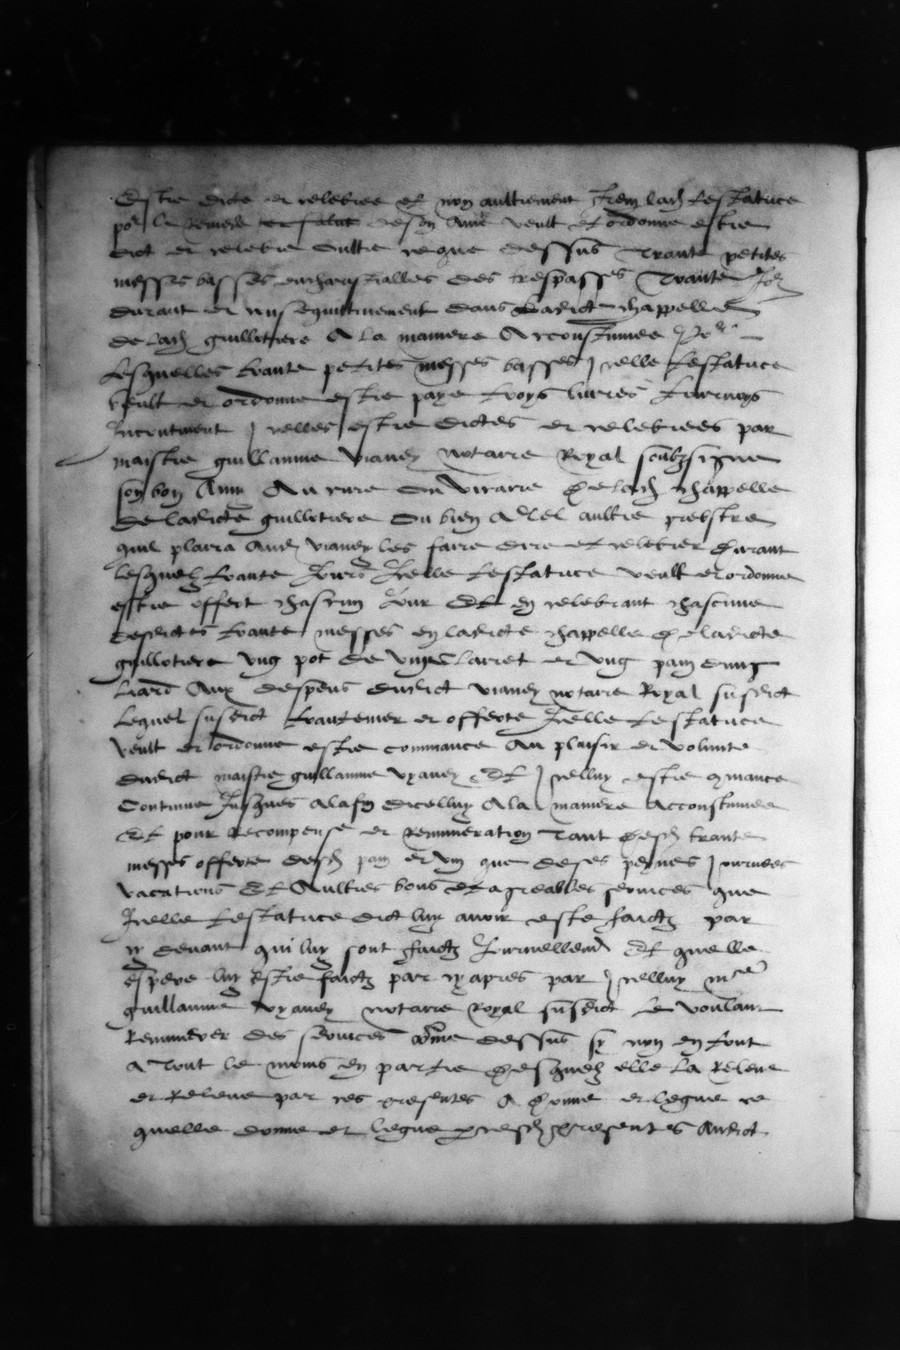 Estre dicte et celebree et non aultrement Item lad testatrice
po le remede de son Ame veult et ordonne estre
dict et celebre oultre ce que dessus trante petites
messes basses des trespasses trante Jo
durant et consequutivement dans ladicte chappelle
de lad guillotiere A la maniere Accoustumee
Lesquelles trante petites messes basses Icelle testatrice
veult et ordonne estre paye troys livres tournoys
Incontinent Icelles estre dictes et celebrees par
maistre guillaume viandy notaire Royal soubzsigne
son bon Amy Au cure ou vicaire de lad chappelle
de ladicte guillotiere ou bien A tel aultre prebstre
quil plaira Aud viandy les faire dire et celebrer durant
lesquelz trante Jours Icelle testatrice veult et ordonne
estre offert chascun Jour Et en celebrant chascune
desdictes trante messes en ladicte chappelle de ladicte
guillotiere ung pot de vin clairet et ung pain dung
liard Aux despens dudict viandy notaire Royal susdict
Lequel susdict trantenier et offerte Icelle testatrice
veult et ordonne estre commance Au plaisir et volunte
dudict maistre guillaume vyandy Et Icelluy estre commance
Continue Jusques Alafin dicelluy Ala maniere Accoustumee
Et pour Recompense et Remuneration tant desd trante
messes offerte desd pain et vin que de ses peynes Journees
vacations Et Aultres bons et agreables services que
Icelle testatrice dict luy avoir este faictz par
cy devant qui luy sont faictz Journellement Et quelle
espere luy Estre faictz par cy apres par Icelluy me
guillaume vyandy notaire royal susdict Le voulant
Remunerer des services comme dessus sy non en tout
A tout le moins en partie desquelz elle la Releve
et Releve par ces presentes A donne et legue ce
quelle donne et legue par cesd presentes Audict